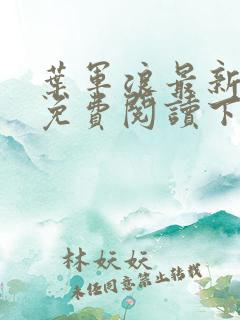 葉軍浪最新
免費閱讀下
林妖妖
未經同意禁止轉載